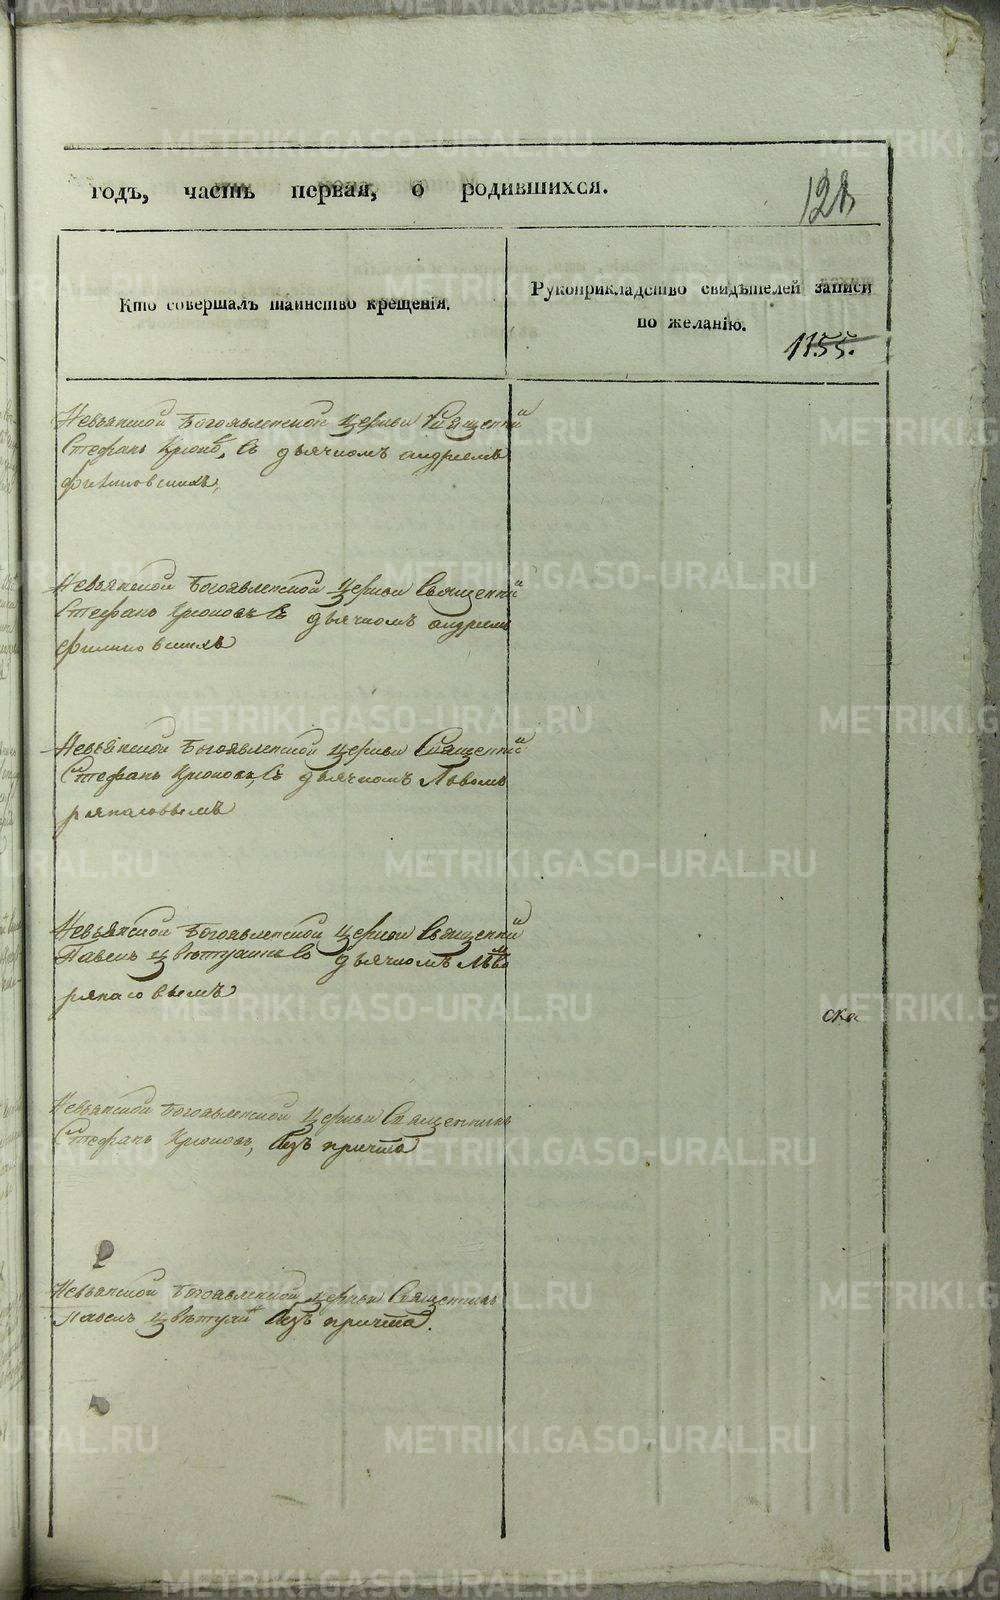 годъ, часть первая, о родившихся.
128
Кто совершалъ таинство крещенія.
Рукоприкладство свидѣтелей записи
по желанію.
1155.
Невьянской Богоявленской церкви Священни
Стефанъ Крюко, съ дьячкомъ андреемъ
филиповскихъ,
Невьянской Богоявленской церкви Священни
Стефанъ Крюковъ съ дьячкомъ андреемъ
филиповскихъ
Невьянской Богоявленской церкви Священни
Стефанъ Крюковъ, съ дьячкомъ Львомъ
ряпасовымъ
Невьянской Богоявленской церкви Священни
Павелъ съ дьячкомъ
ряпасовымъ
ска
Невьянской Богоявленской церкви Священникъ
Стефанъ Крюковъ, безъ причта
Невьянской Богоявленской церкви Священникъ
Павелъ безъ причта.
METRIKI.GASO-URAL.RU